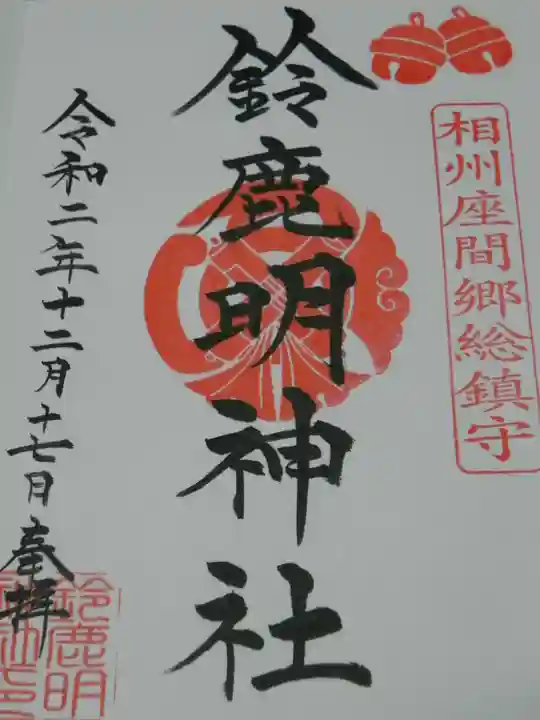 相州座間郷総鎮守
鈴鹿明神社
令和二年十二月十七日奉拝
鈴鹿明